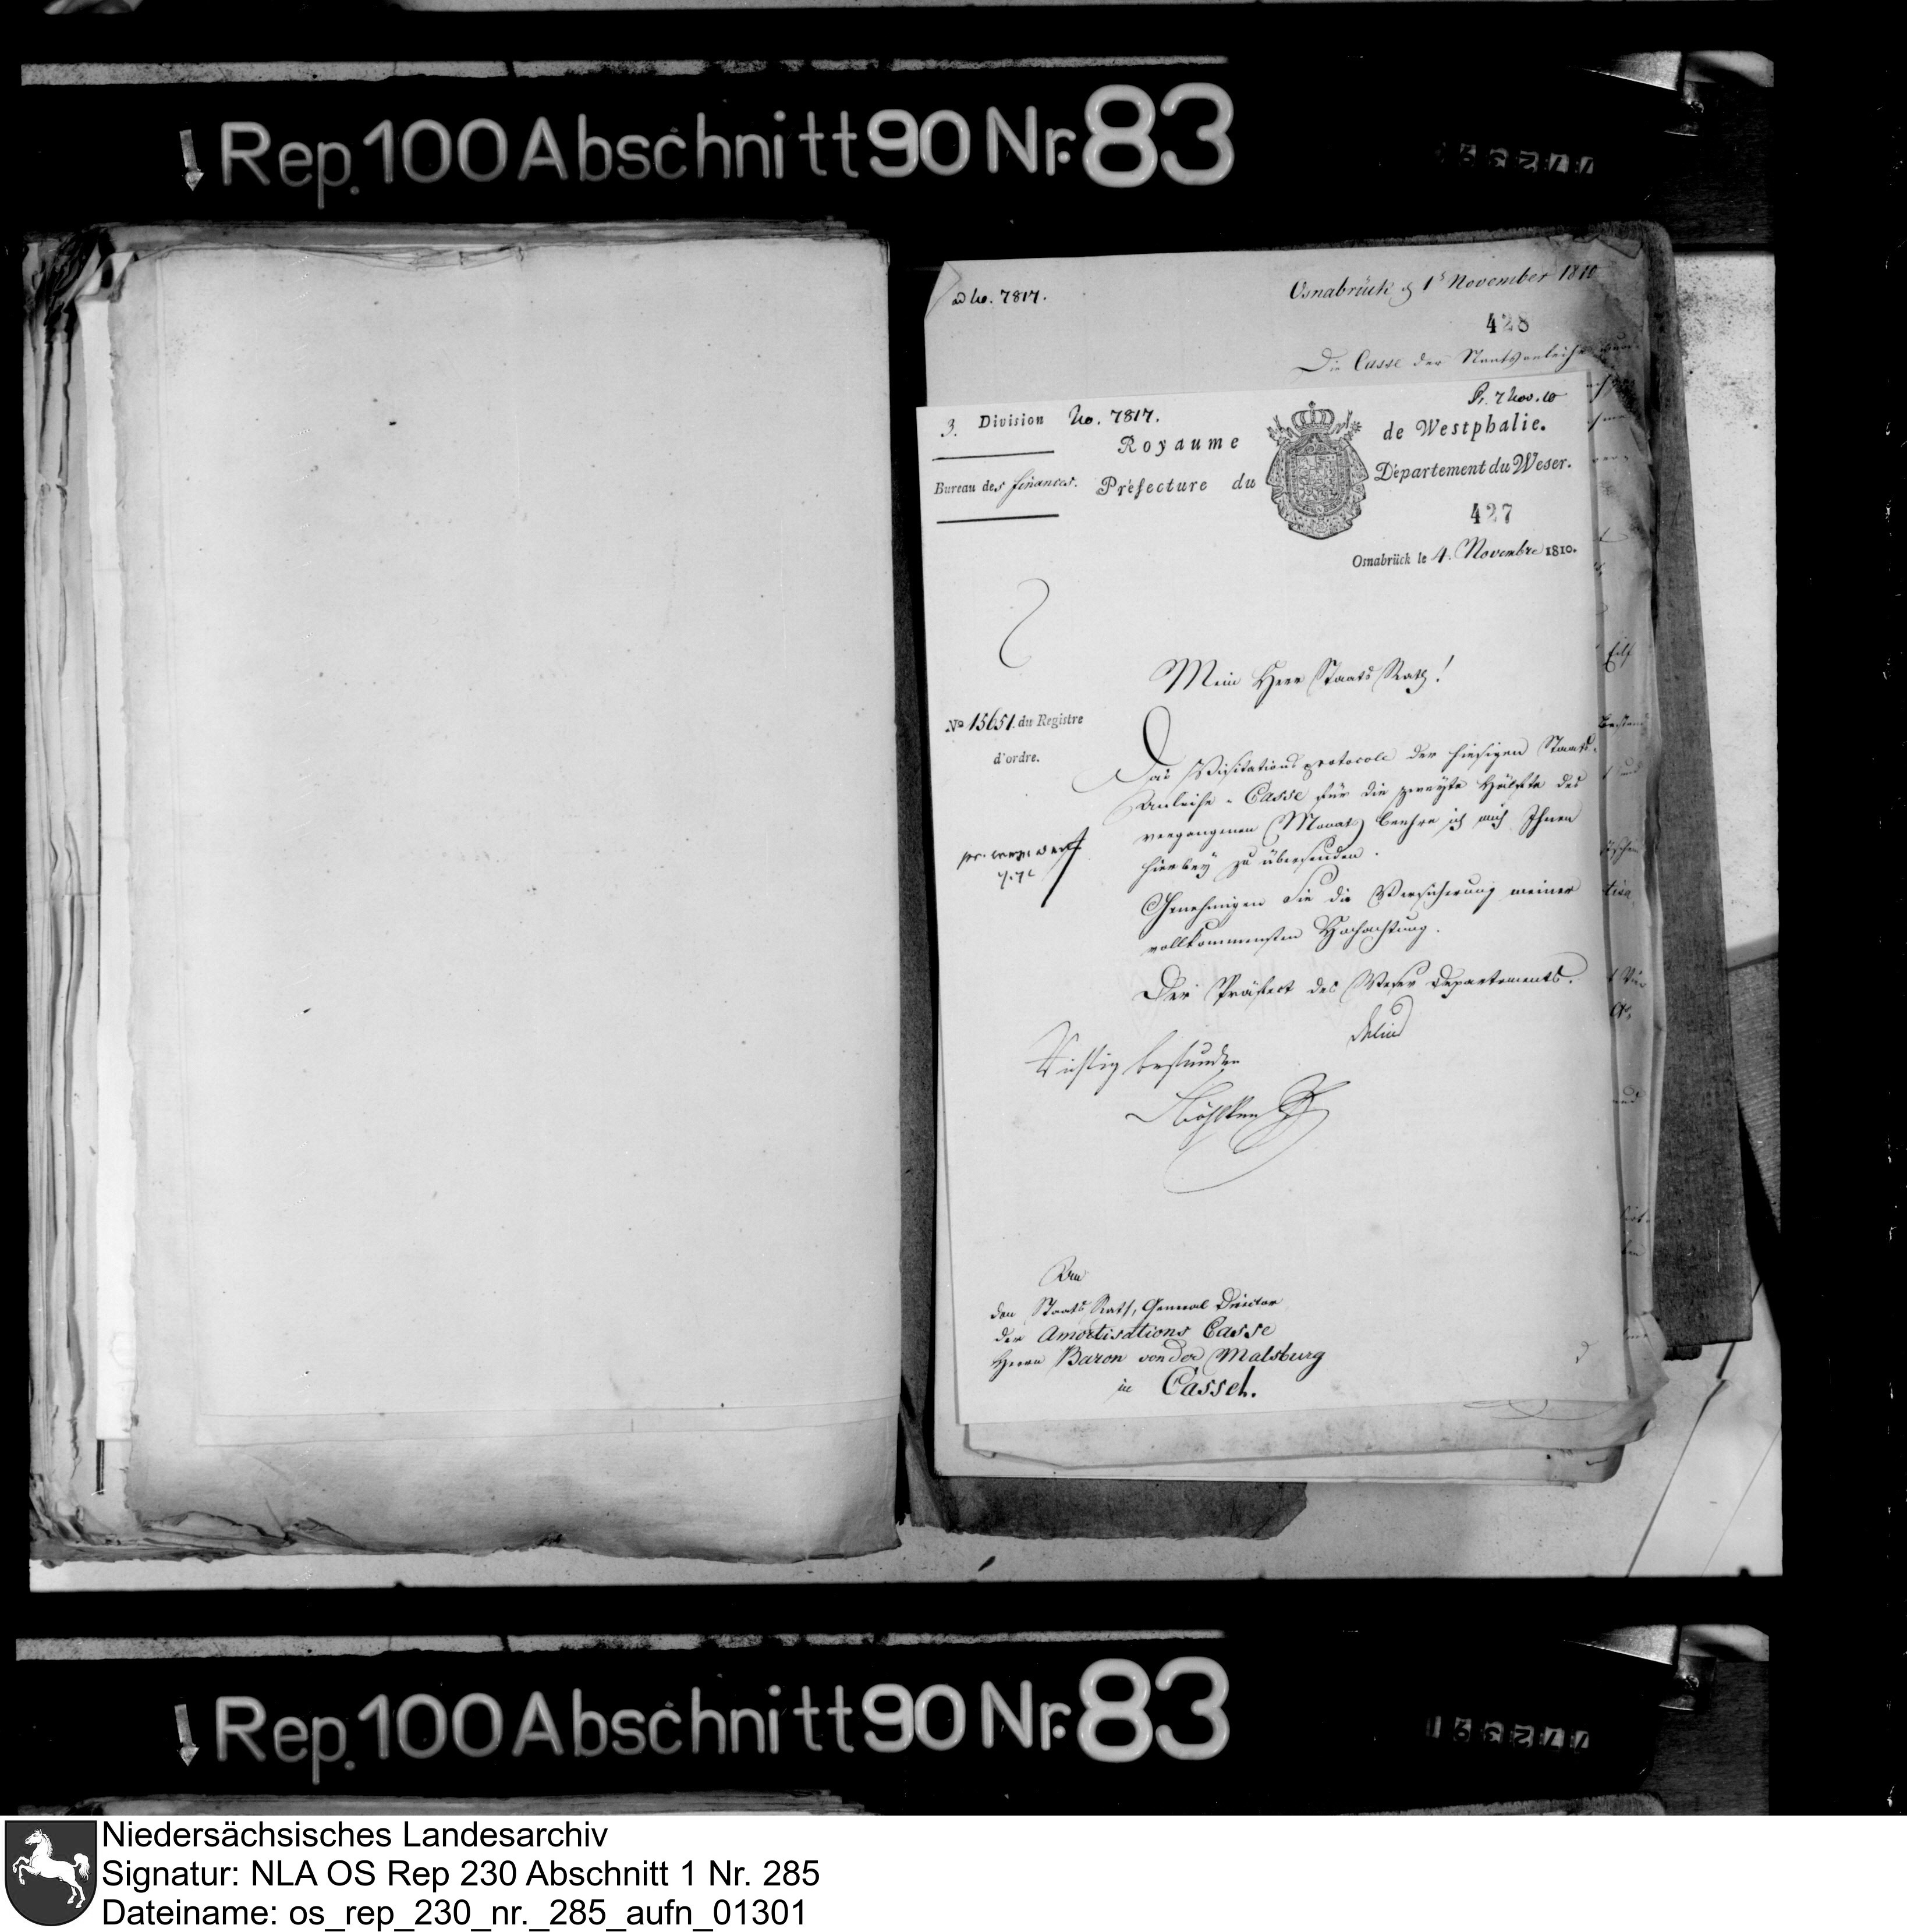 Rep. 100 Abschnitt 90 Nr. 83
ad No. 7817.
Osnabrück d 1ˢ November 1810
428
Die Casse der Staatsanleihe
Pr. 7 Nov. 10
3. Division No. 7817.
Royaume de Westphalie.
Bureau des finances.
Préfecture du Département du Weser.
427
Osnabrück le 4. Novembre 1810.
Mein Herr Staats Rath!
No 15651. du Registre
d'ordre.
Das Visitationsprotocole der hiesigen Staats-
Anleihe-Casse für die zweyte Hälfte des
vergangenen Monats beehre ich mich Ihnen
hierbey zu übersenden.
Genehmigen Sie die Versicherung meiner
vollkommensten Hochachtung.
Der Präfect des Weser Departements.
Delius
Richtig befunden
An
den Staats Rath, General Director
der Amortisations Casse
Herrn Baron von der Malsburg
in Cassel.
Rep. 100 Abschnitt 90 Nr. 83
Niedersächsisches Landesarchiv
Signatur: NLA OS Rep 230 Abschnitt 1 Nr. 285
Dateiname: os_rep_230_nr._285_aufn_01301